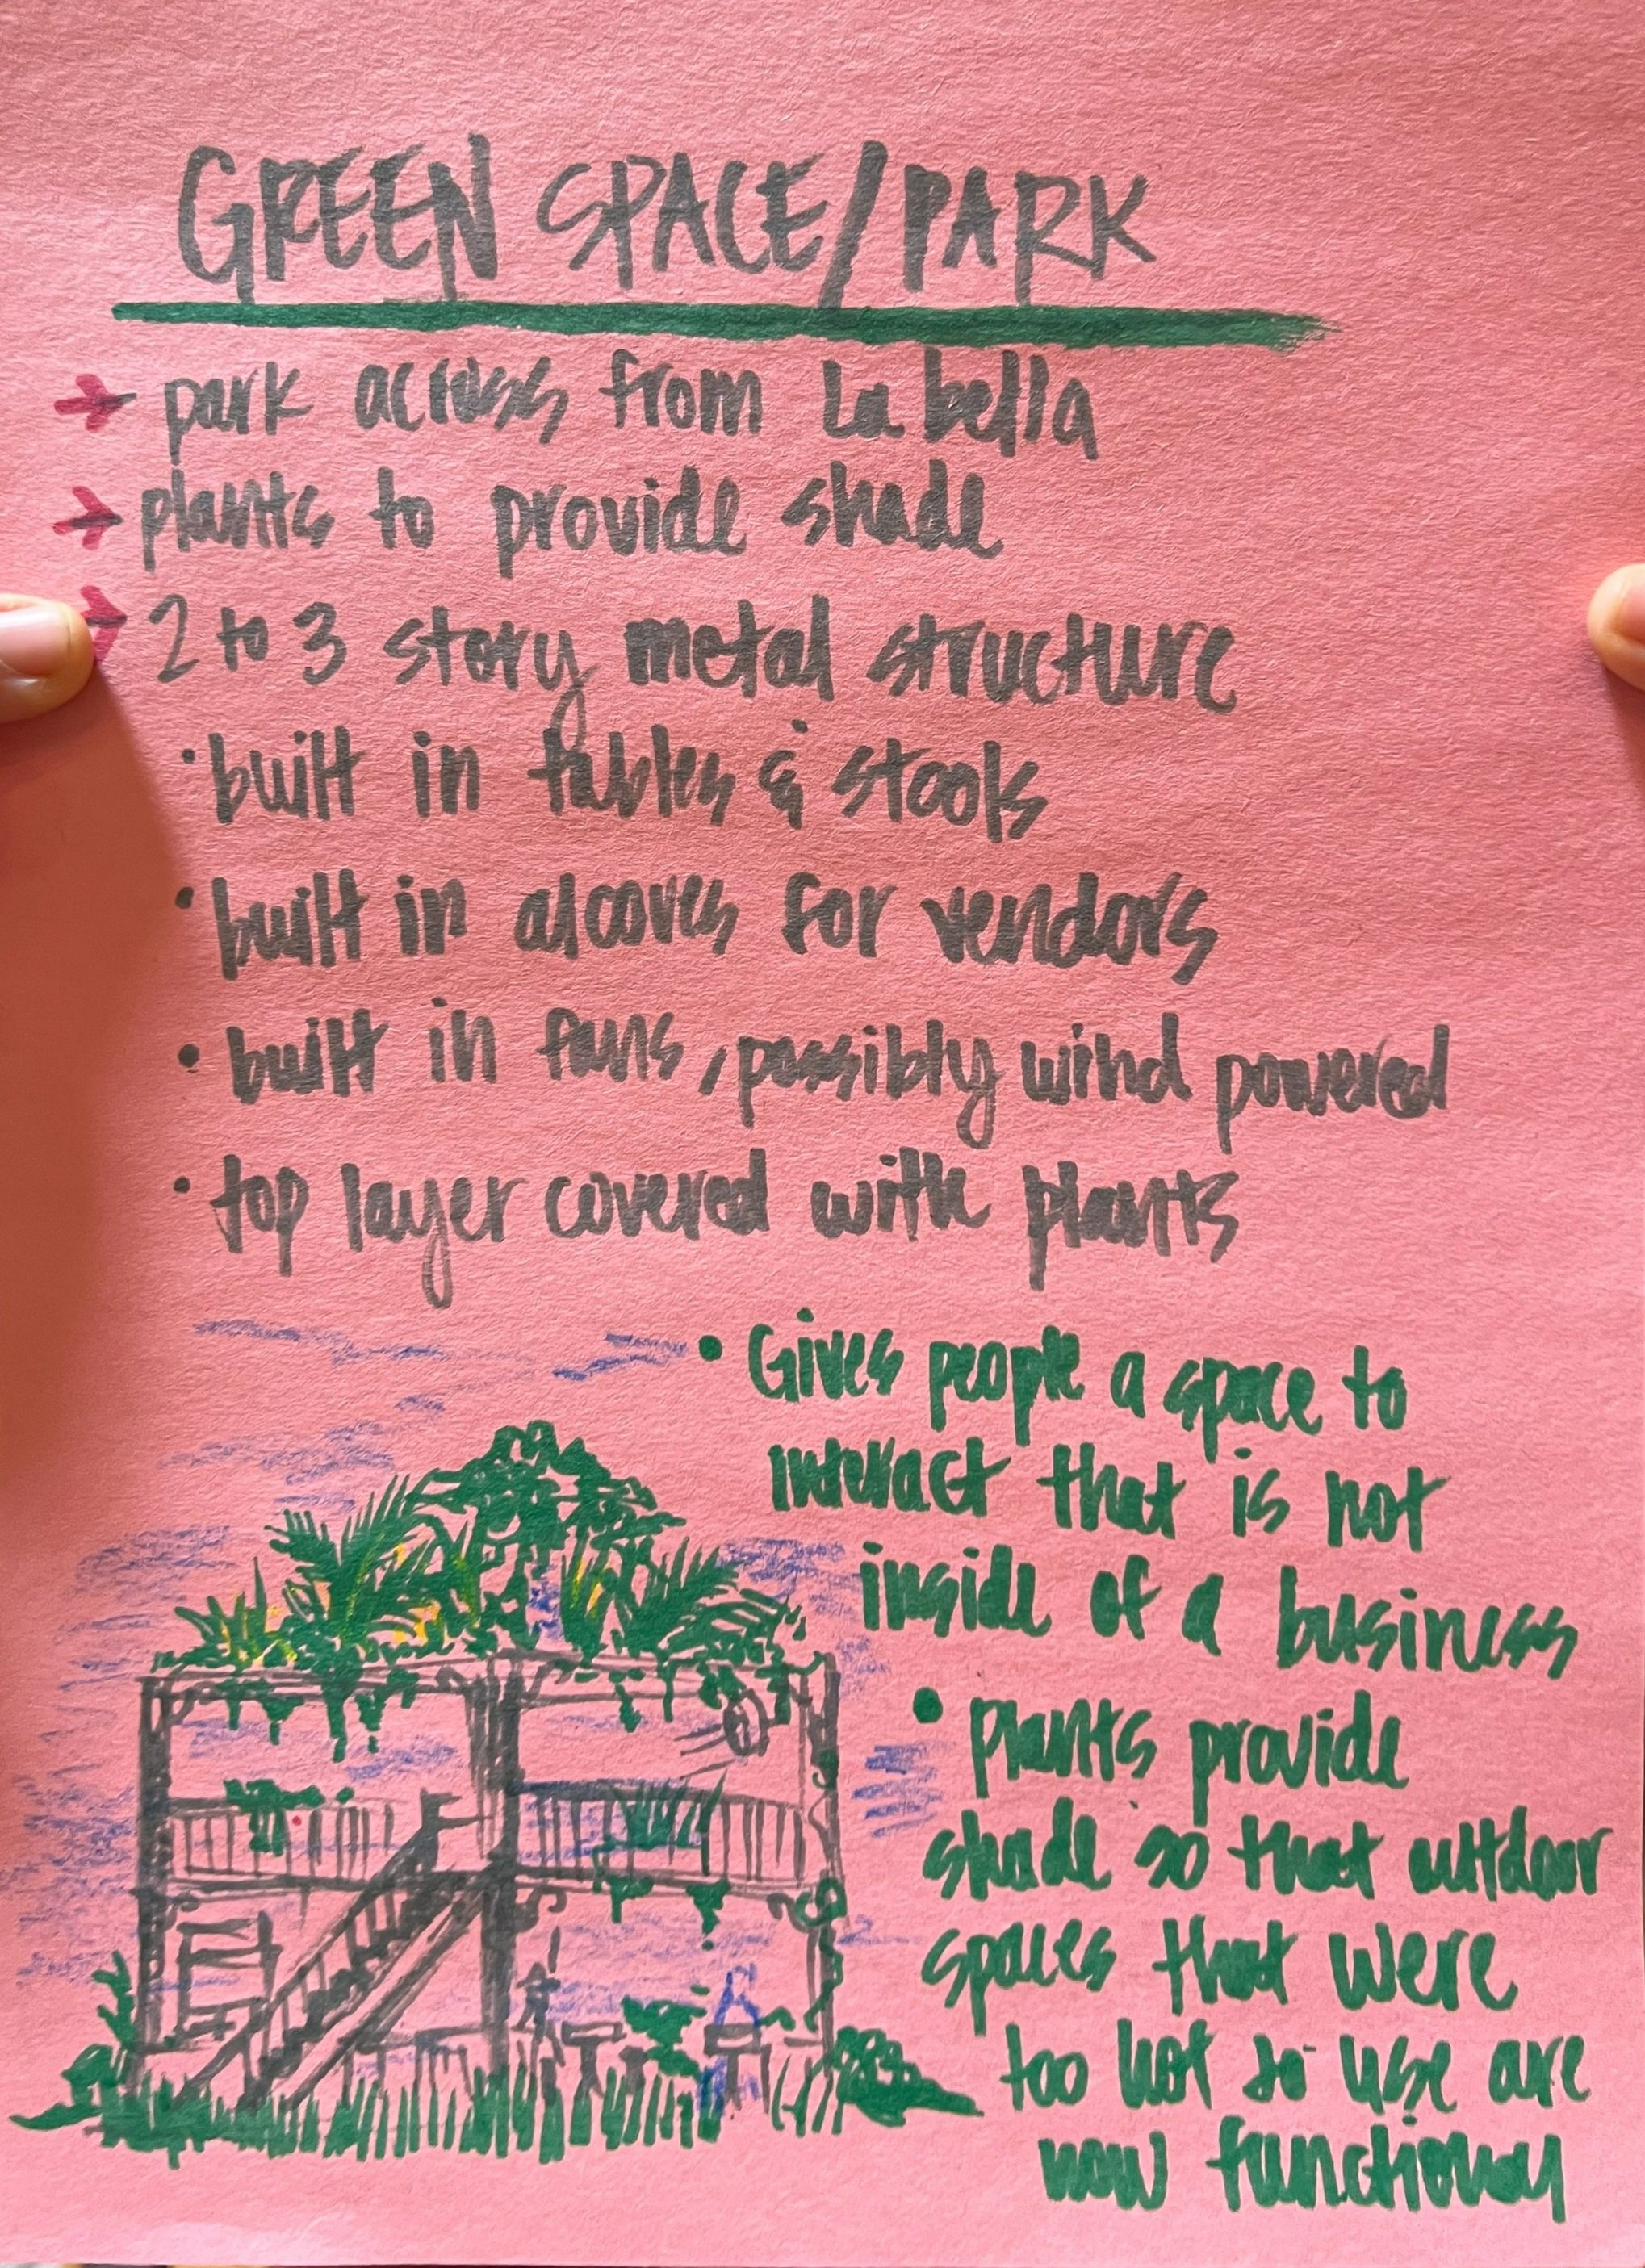 GREEN SPACE/PARK
→ park across from La bella
→ plants to provide shade
→ 2 to 3 story metal structure
• built in tables & stools
• built in alcoves for vendors
• built in fans, possibly wind powered
• top layer covered with plants
• Gives people a space to
interact that is not
inside of a business
• plants provide
shade so that outdoor
spaces that were
too hot to use are
now functional